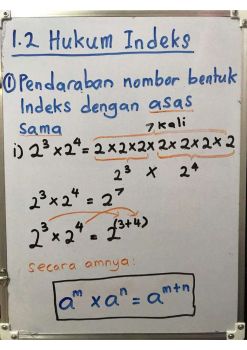 1.2 Hukum Indeks
① Pendaraban nombor bentuk
Indeks dengan asas
sama
7 kali
i) 2³ × 2⁴ = 2 × 2 × 2 × 2 × 2 × 2 × 2
2³ × 2⁴
2³ × 2⁴ = 2⁷
2³ × 2⁴ = 2⁽³⁺⁴⁾
secara amnya:
aᵐ × aⁿ = aᵐ⁺ⁿ